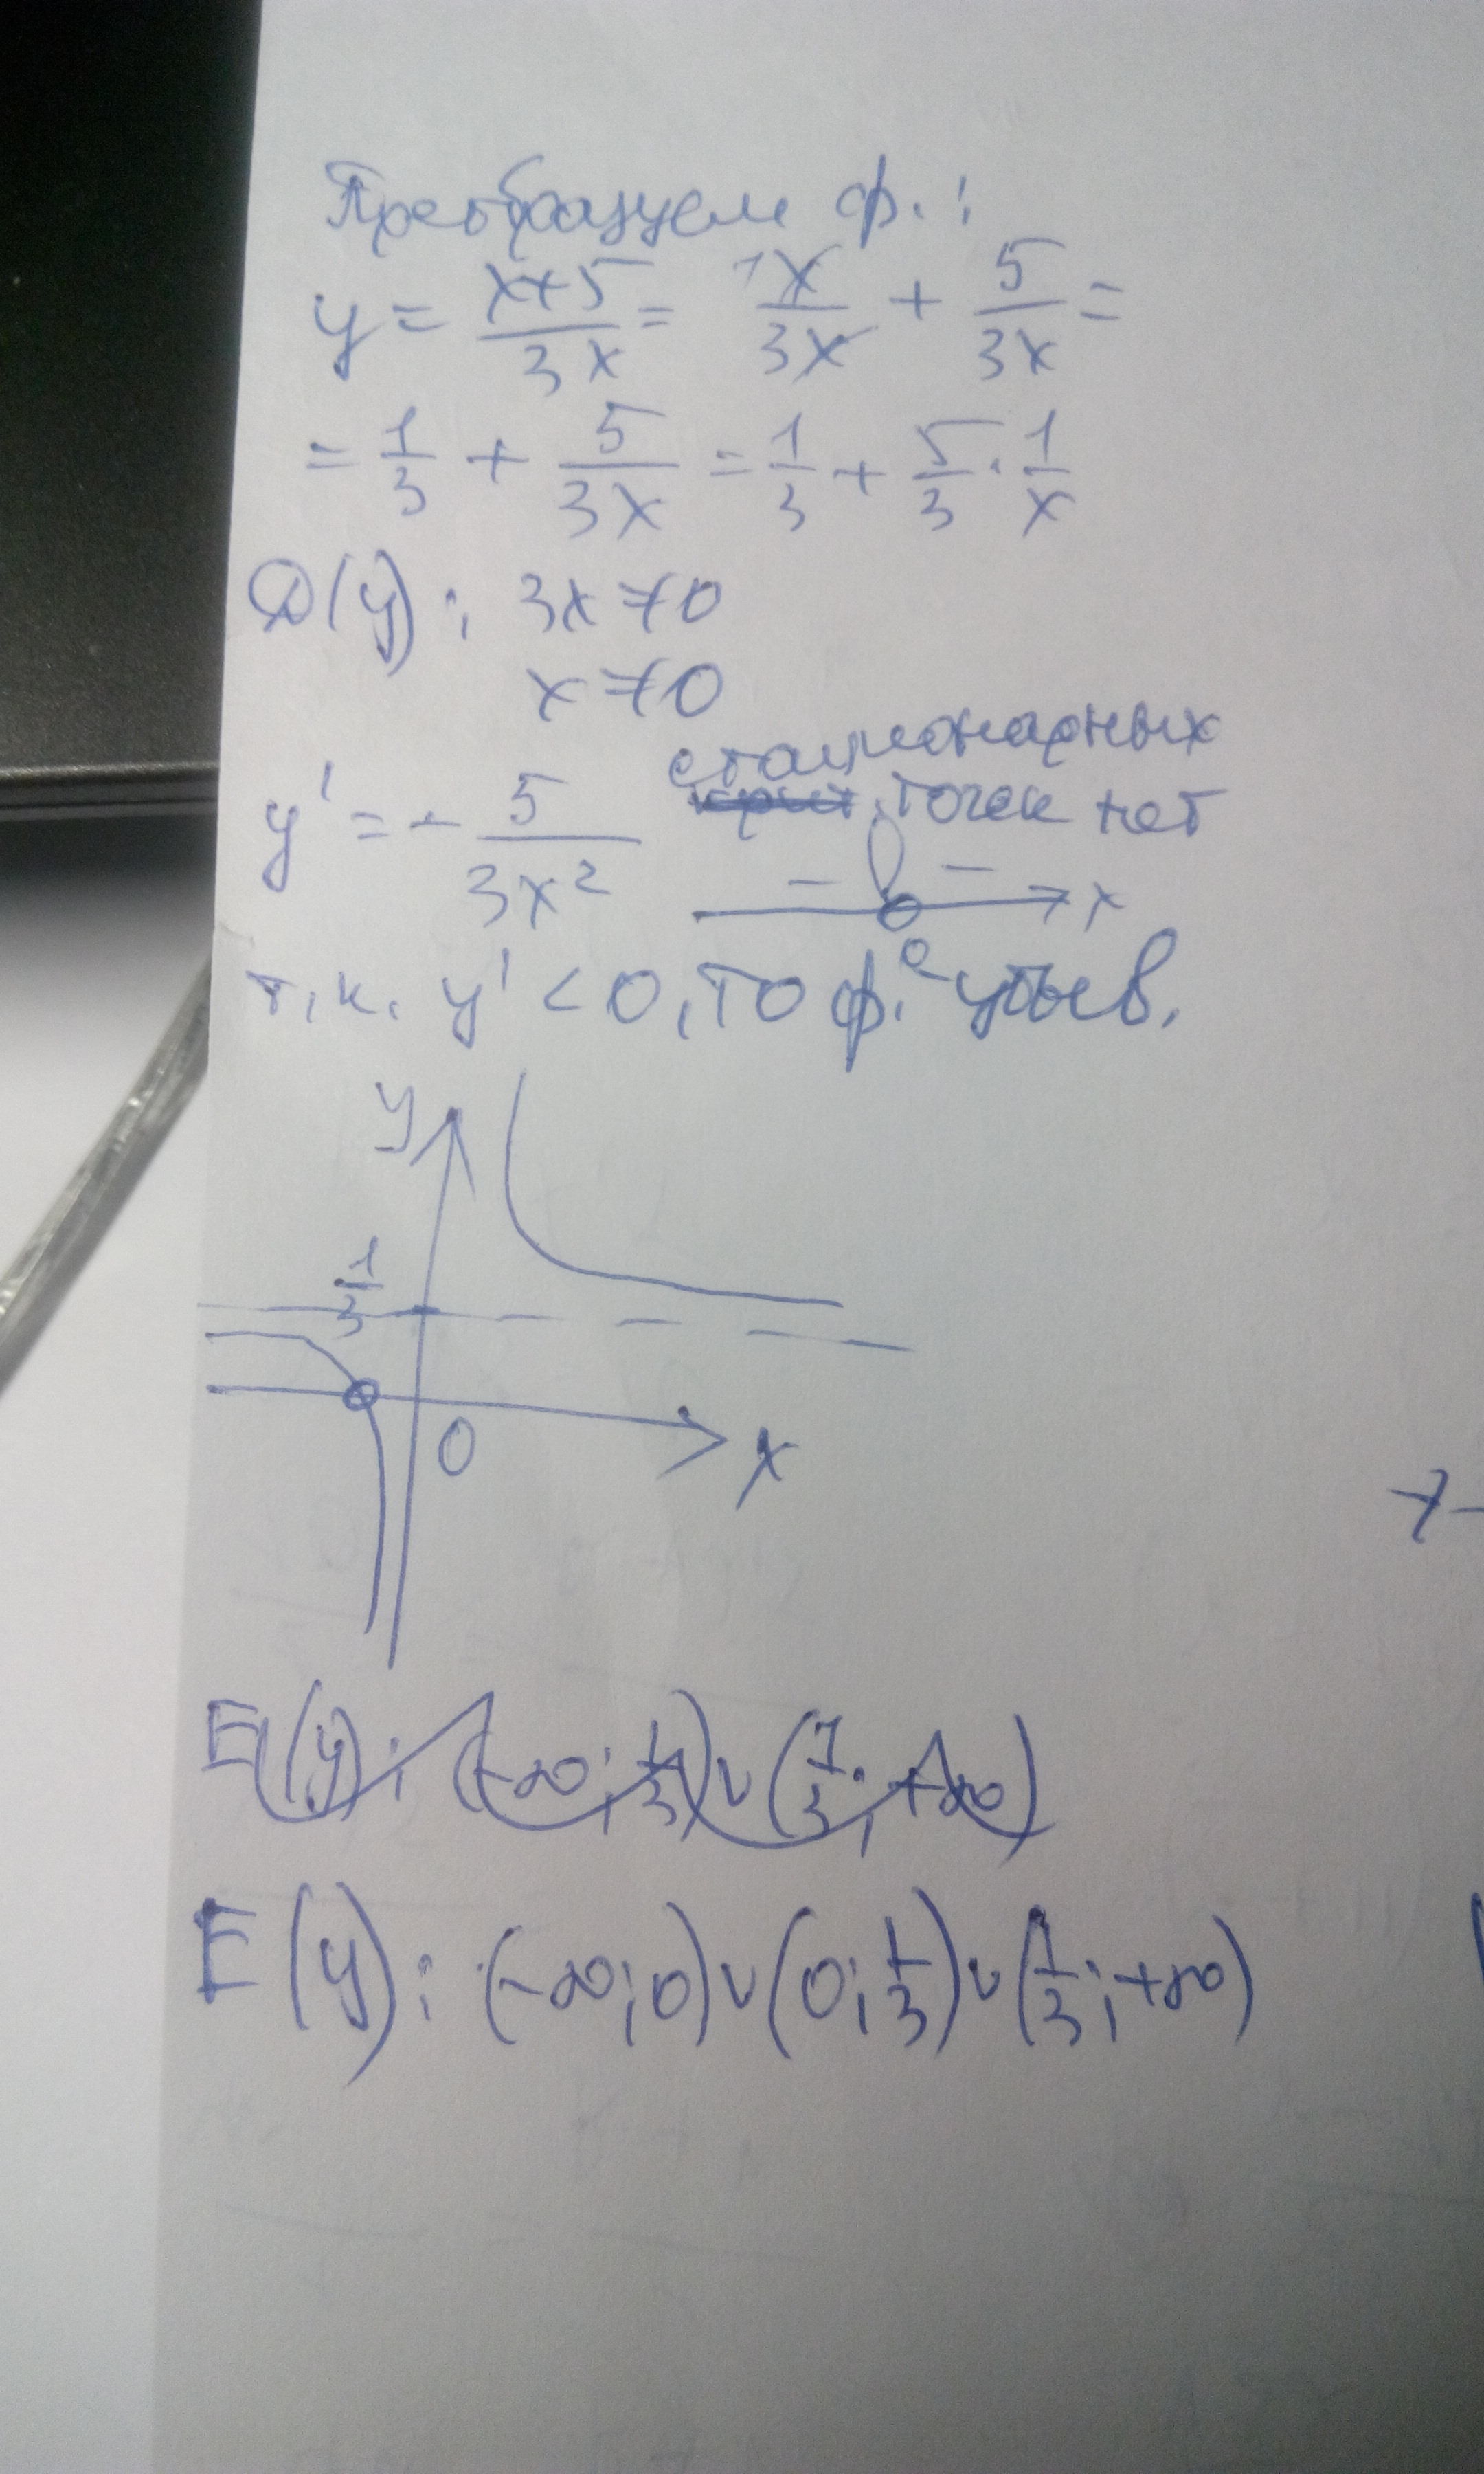 Преобразуем ф.:
y = \frac{x+5}{3x} = \frac{x}{3x} + \frac{5}{3x} =
= \frac{1}{3} + \frac{5}{3x} = \frac{1}{3} + \frac{5}{3} · \frac{1}{x}
D(y): 3x ≠ 0
x ≠ 0
стационарных
y' = - \frac{5}{3x^2} точек нет
- - x
0
т.к. y' < 0, то ф. убыв.
y
\frac{1}{3}
0 x
E(y): (-∞; \frac{1}{3}) ∪ (\frac{1}{3}; +∞)
E(y): (-∞; 0) ∪ (0; \frac{1}{3}) ∪ (\frac{1}{3}; +∞)